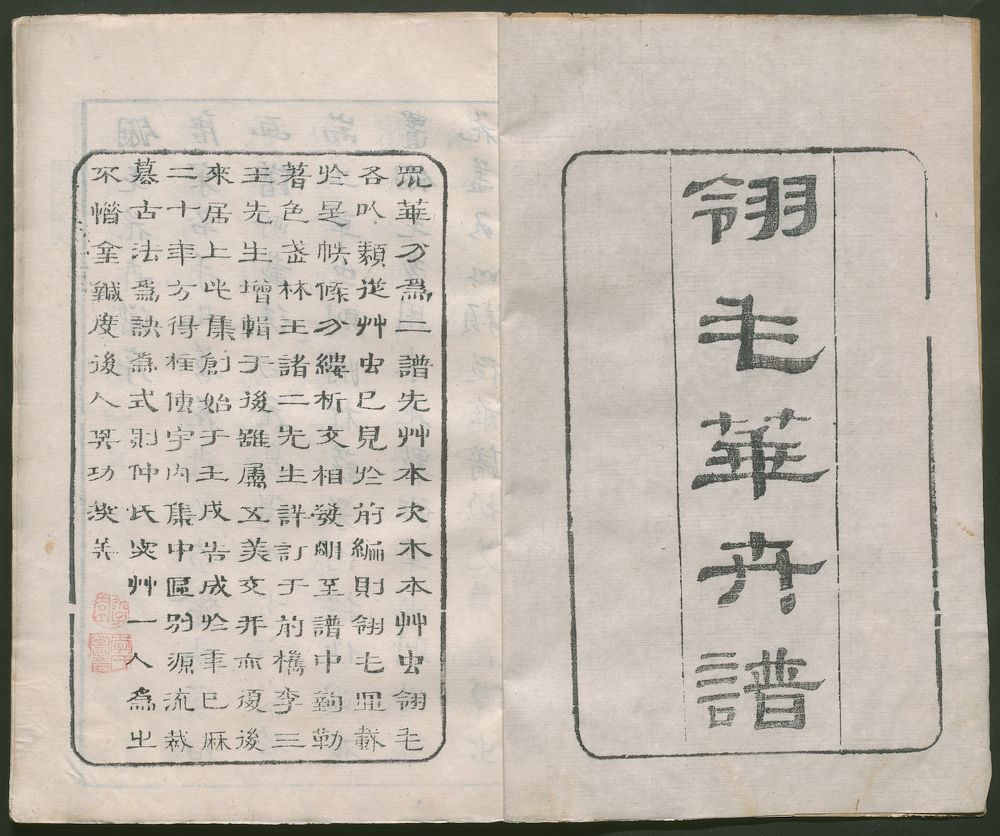 翎毛華卉譜
眾華分為二譜先艸本次木本艸虫翎毛
各以類從艸虫已見於前編則翎毛載
於是帙條分縷析交相發明至譜中鉤勒
著色武林王諸二先生詳訂于前檇李三
王先生增輯于後雖屬五美交并亦復後
來居上此集創始于壬戌告成於辛巳厤
二十年方得傳宇內集中區別源流裁
摹古法為訣為式則仲氏宓艸一人為之
不惜金鍼度後人其功